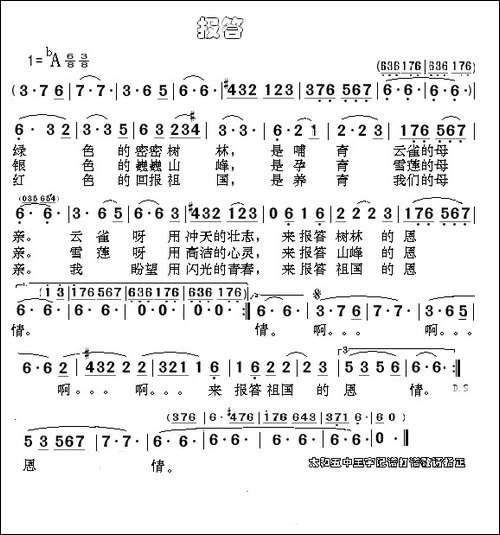 报答
1=♭A 6/8 3/8
(636 176 | 636 176)
(3·7 6 | 7·7· | 3·6 5 | 6·6· | #432 123 | 376 567 | 6·6· | 6·6·)
6·3 2 | 3·3 5 | 63 234 | 3·3· | 6·2 1 | 2·2 3 | 176 567
绿 色的密密树 林，是哺 育 云雀的母
银 色的巍巍山 峰，是孕 育 雪莲的母
红 色的回报祖 国，是养 育 我们的母
(035 654)
6·6· | 3·6 5 | 6·6 3 | #432 123 | 0 6 1 6 | 2 2 2 3 | 176 567
亲。 云 雀 呀 用 冲天的壮志，来报答 树林 的 恩
亲。 雪 莲 呀 用 高洁的心灵，来报答 山峰 的 恩
亲。 我 盼望 用 闪光的青春，来报答 祖国 的 恩
(i3 | i76 567 | 636 176 | 636 176)
6·6· | 6·6· | 0·0· | 0·0· :| 6·6· | 3·7 6 | 7·7· | 3·6 5
情。 情。 啊。。。 啊。。。
6·6 2 | #432 2 2 | 321 1 6 | 1 6 2 2 | 2·3 | 5 3 5 6 | 6·6· :|
啊。。。 啊。。。 来 报答 祖国 的 恩 情。 D.S
(376 | 6·#476 | 176 643 | 371 6·6 0)
5 3 567 | 7·7· | 6·6· | 6·6· | 6·6· | 6·6· ‖
恩 情。